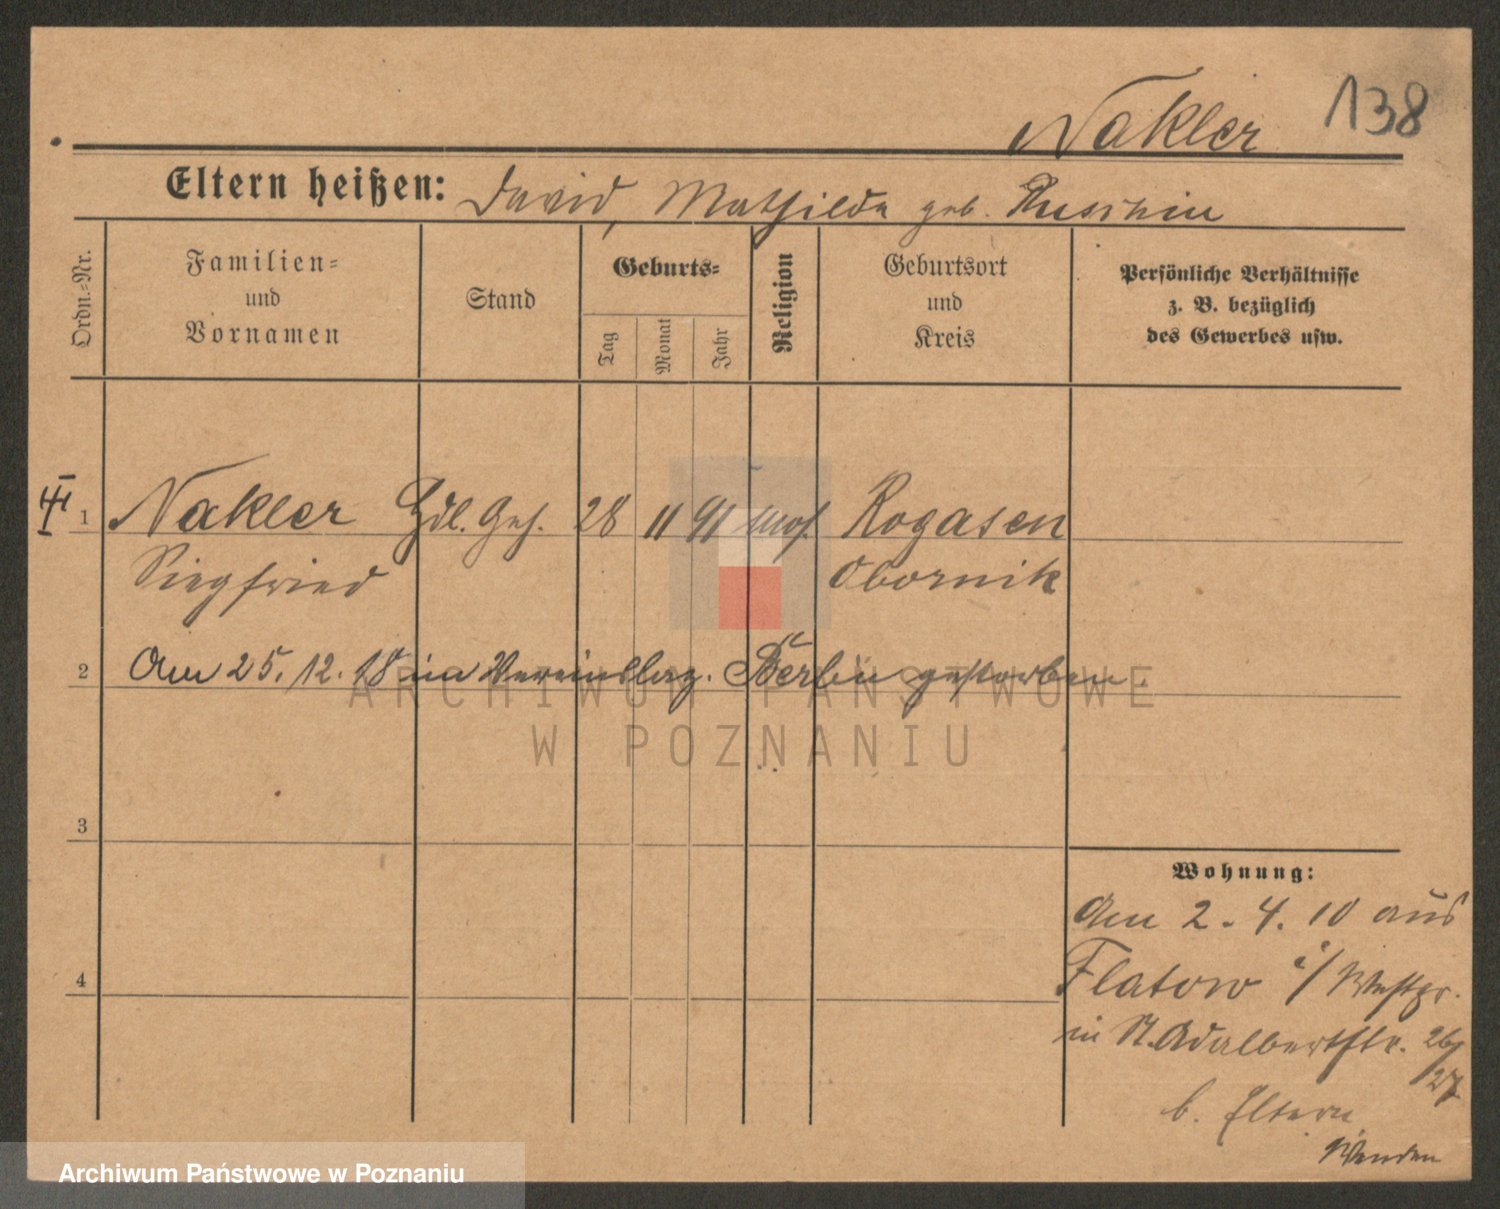 138
Nakler
Eltern heißen: David, Mathilde geb.
Ordn.=Nr.
Familien=
und
Vornamen
Stand
Geburts=
Tag
Monat
Jahr
Religion
Geburtsort
und
Kreis
Persönliche Verhältnisse
z. B. bezüglich
des Gewerbes usw.
1 Nakler Hdl. Geh. 28 11 91 mos. Rogasen
Siegfried Obornik
2 Am 25. 12. 18 im Vereinslaz. Berlin gestorben.
ARCHIWUM PAŃSTWOWE
W POZNANIU
3
4
Wohnung:
Am 2. 4. 10 aus
Flatow i/ Westpr.
in St. Adalbertstr. 26/
27
b. Eltern
Wenden
Archiwum Państwowe w Poznaniu